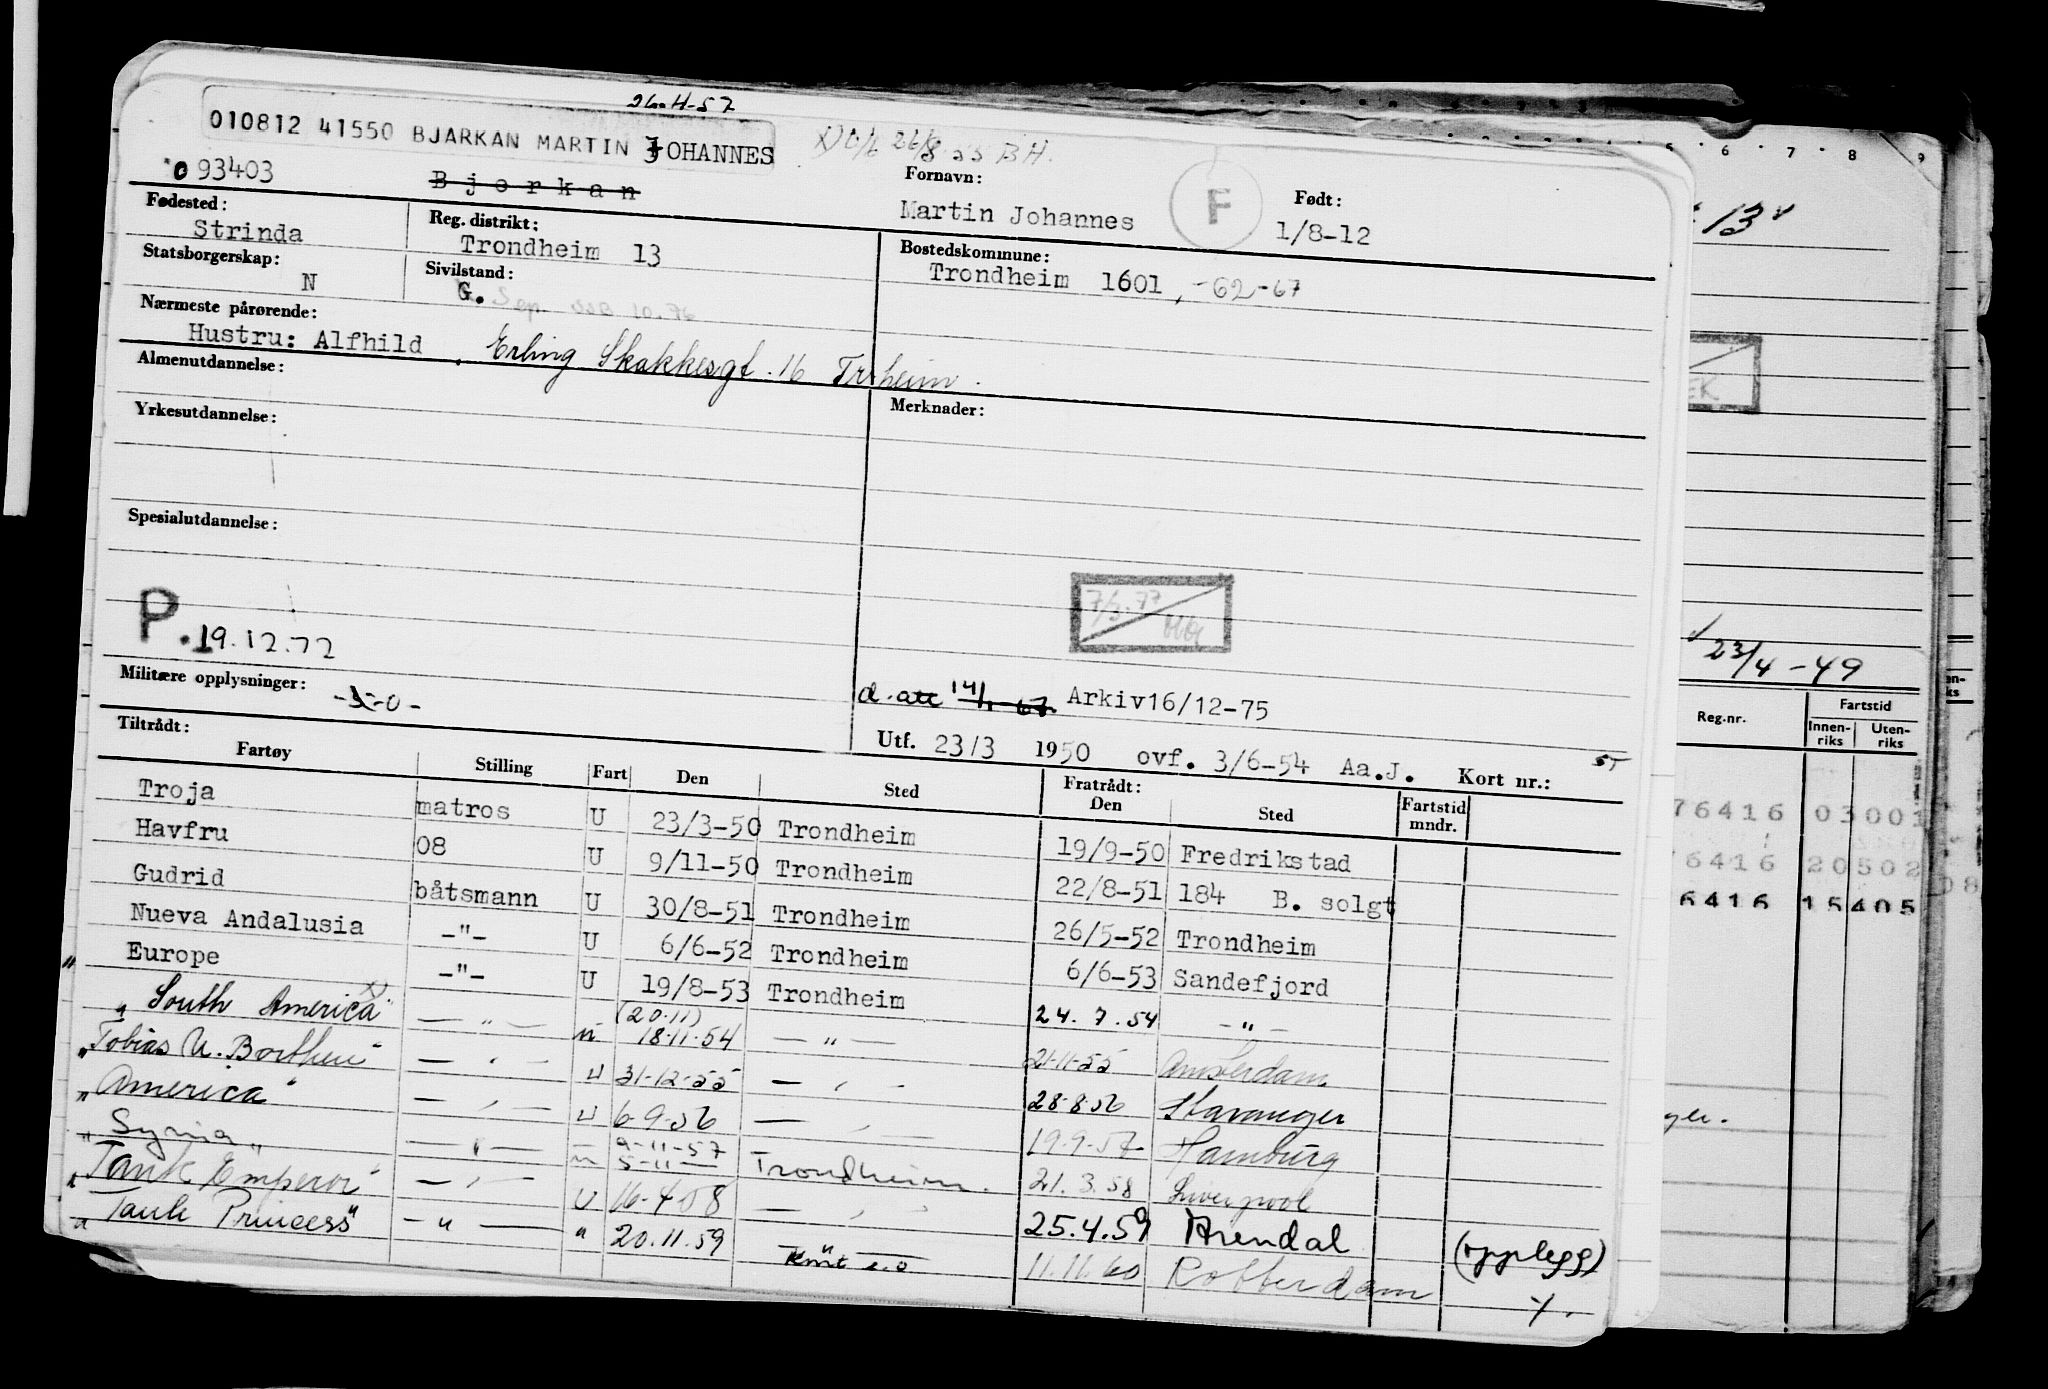 26-4-57
010812 41550 BJARKAN MARTIN JOHANNES
26/8 55 BH.
093403 Bjørkan Fornavn: Martin Johannes F Født: 1/8-12
Fødested: Strinda Reg. distrikt: Trondheim 13 Bostedskommune: Trondheim 1601, -62-67
Statsborgerskap: N Sivilstand: G. Sep. 10.76
Nærmeste pårørende: Hustru: Alfhild, Erling Skakkesgt. 16 Tr.heim.
Almenutdannelse:
Yrkesutdannelse: Merknader:
Spesialutdannelse:
7/3.77
P. 19.12.72
Militære opplysninger: d. att 14/1-67. Arkiv 16/12-75
Utf. 23/3 1950 ovf. 3/6-54 Aa.J. Kort nr.:
Tiltrådt: Fratrådt:
Fartøy Stilling Fart Den Sted Den Sted Fartstid mndr.
Troja matros U 23/3-50 Trondheim 19/9-50 Fredrikstad
Havfru 08 U 9/11-50 Trondheim 22/8-51 184 B. solgt
Gudrid båtsmann U 30/8-51 Trondheim 26/5-52 Trondheim
Nueva Andalusia -"- U 6/6-52 Trondheim 6/6-53 Sandefjord
Europe -"- U 19/8-53 Trondheim 24.7.54 -"-
"South America" x) -"- u (20.11) 18.11.54 -"- 21.11.55 Amsterdam
"Tobias U. Borthen" -"- u 31-12-55 -"- 28.8.56 Stavanger
"America" -"- u 6-9-56 -"- 19.9.57 Hamburg
"Syria" -"- u 9-11-57 5-11- Trondheim. 21.3.58 Liverpool
"Tank Emperor" -"- U 16-4-58 -"- 25.4.59 Arendal (opplegg)
"Tank Princess" -"- " 20.11.59 11.11.60 Rotterdam
5 6 7 8 9
13
23/4-49
Reg.nr. Fartstid
Innenriks Utenriks
76416 03001
6416 20502
6416 15405
08